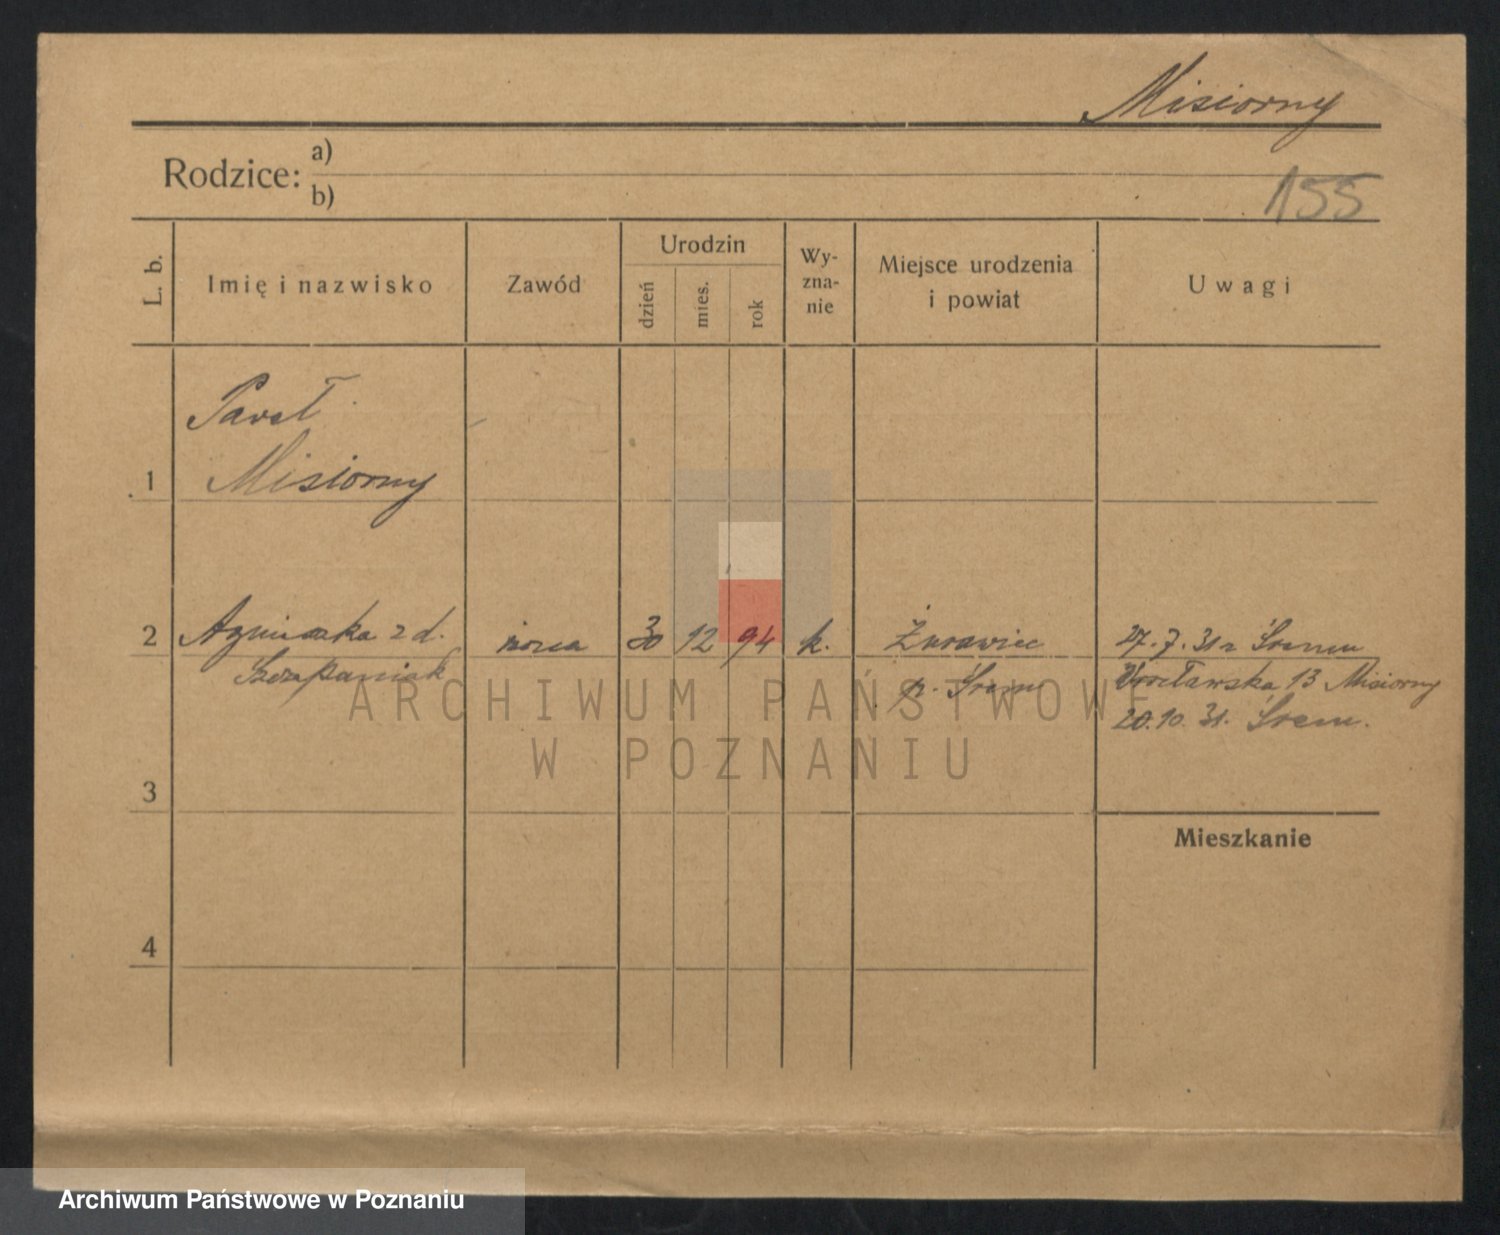 Misiorny
Rodzice: a)
b)
155
L. b.
Imię i nazwisko
Zawód
Urodzin
dzień
mies.
rok
Wy-
zna-
nie
Miejsce urodzenia
i powiat
Uwagi
1
Paweł
Misiorny
2
Agnieszka z d.
Szczepaniak
żona
30
12
94
k.
Żurawiec
p. Śrem
27.7.31 z Śremu
Wrocławska 13 Misiorny
20.10.31. Śrem.
3
Mieszkanie
4
ARCHIWUM PAŃSTWOWE
W POZNANIU
Archiwum Państwowe w Poznaniu